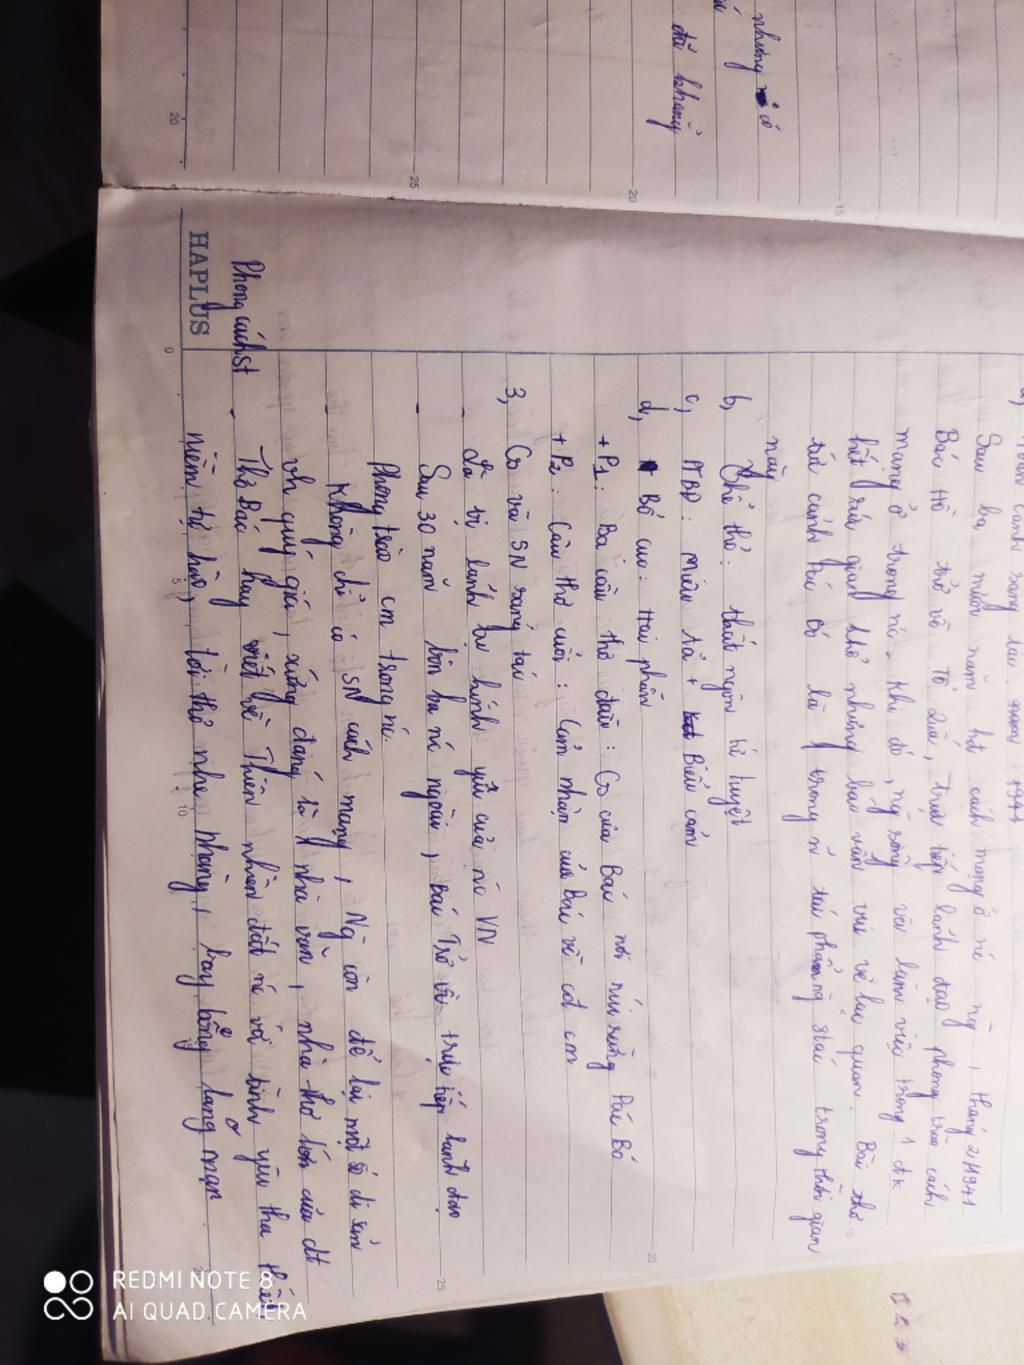 những có
để khẳng
a, Hoàn cảnh sáng tác: năm 1941
Sau ba mươi năm hđ cách mạng ở nc ng, tháng 2/1941
Bác Hồ trở về Tổ Quốc, trực tiếp lãnh đạo phong trào cách
mạng ở trong nc. Khi đó, ng sống và làm việc trong 1 đk
hết sức gian khổ nhưng Bác vẫn vui vẻ lạc quan. Bài thơ
tức cảnh Pác Bó là 1 trong n tác phẩm ng stác trong thời gian
này
b, thể thơ: thất ngôn tứ tuyệt
c, PTBĐ: Miêu tả + Biểu cảm
d, Bố cục: Hai phần
+ P1: Ba câu thơ đầu: Cs của Bác nơi núi rừng Pác Bó
+ P2: Câu thơ cuối: Cảm nhận của Bác về cđ cm
3, Cs và SN sáng tác
- Là vị lãnh tụ kính yêu của nc VN
- Sau 30 năm bôn ba nc ngoài, Bác Trở về trực tiếp lãnh đạo
phong trào cm trong nc.
- Không chỉ có SN cách mạng, Ng còn để lại một số di sản
vh quý giá, xứng đáng là 1 nhà văn, nhà thơ lớn của dt
Phong cách st - Thơ Bác hay viết về Thiên nhiên đất nc với tình yêu tha thiết
niềm tự hào, lời thơ nhẹ nhàng, bay bổng lãng mạn
HAPLUS
REDMI NOTE 8
AI QUAD CAMERA